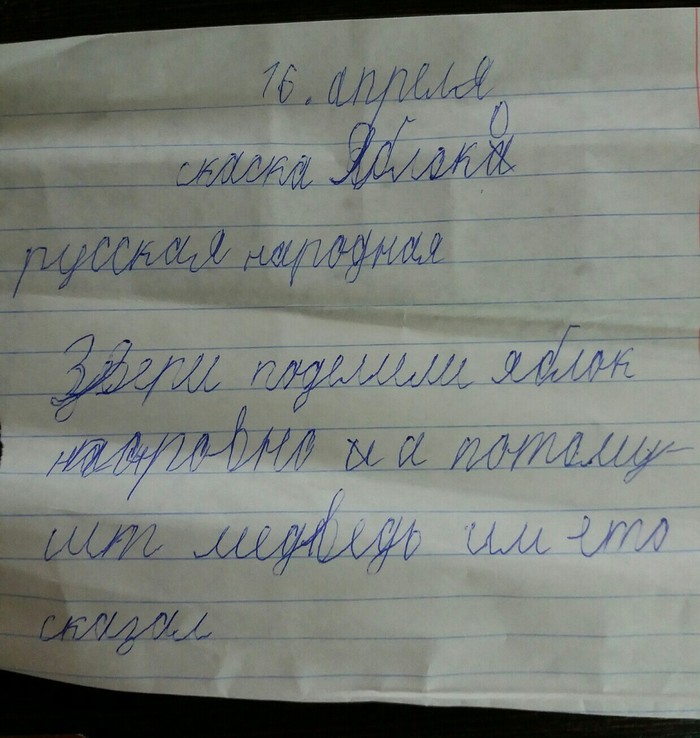 16. апреля
скаска Яблоко
русская народная
Звери поделили яблок
наофовно и а потому-
шт медведь им ето
сказал